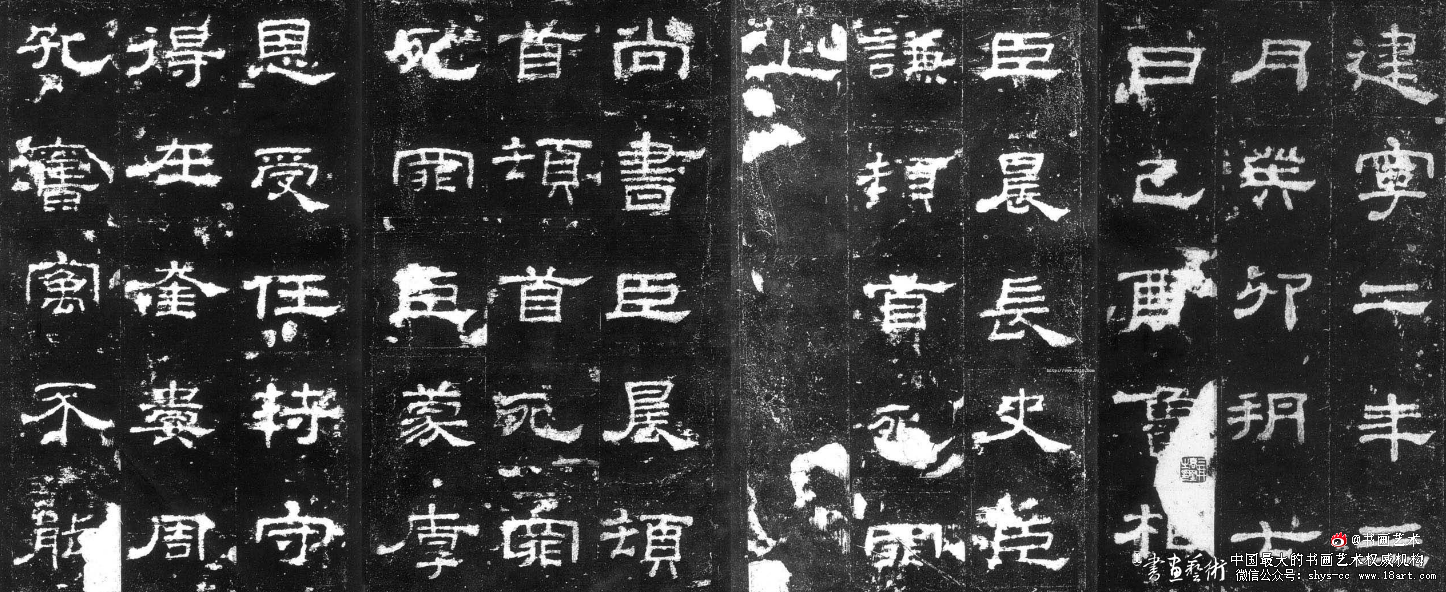 建寧二年三
月癸卯朔七
日己酉魯相
臣晨長史臣
謙頓首死罪
上
尚書臣晨頓
首頓首死罪
死罪臣蒙厚
恩受任符守
得在奎婁周
孔舊寓不能
@书画艺术
書畫藝術
中国最大的书画艺术权威机构
微信公众号: shys-cc www.18art.com